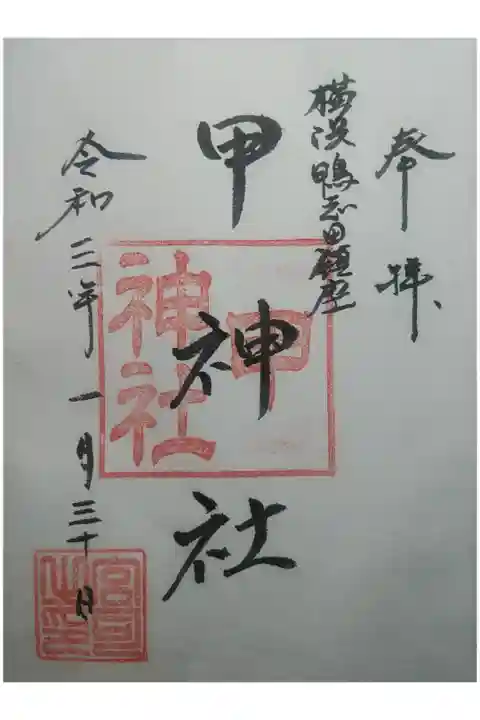 奉拝
横浜鴨志田鎮座
甲神社
甲
神社
令和三年一月三十日
宮司之印